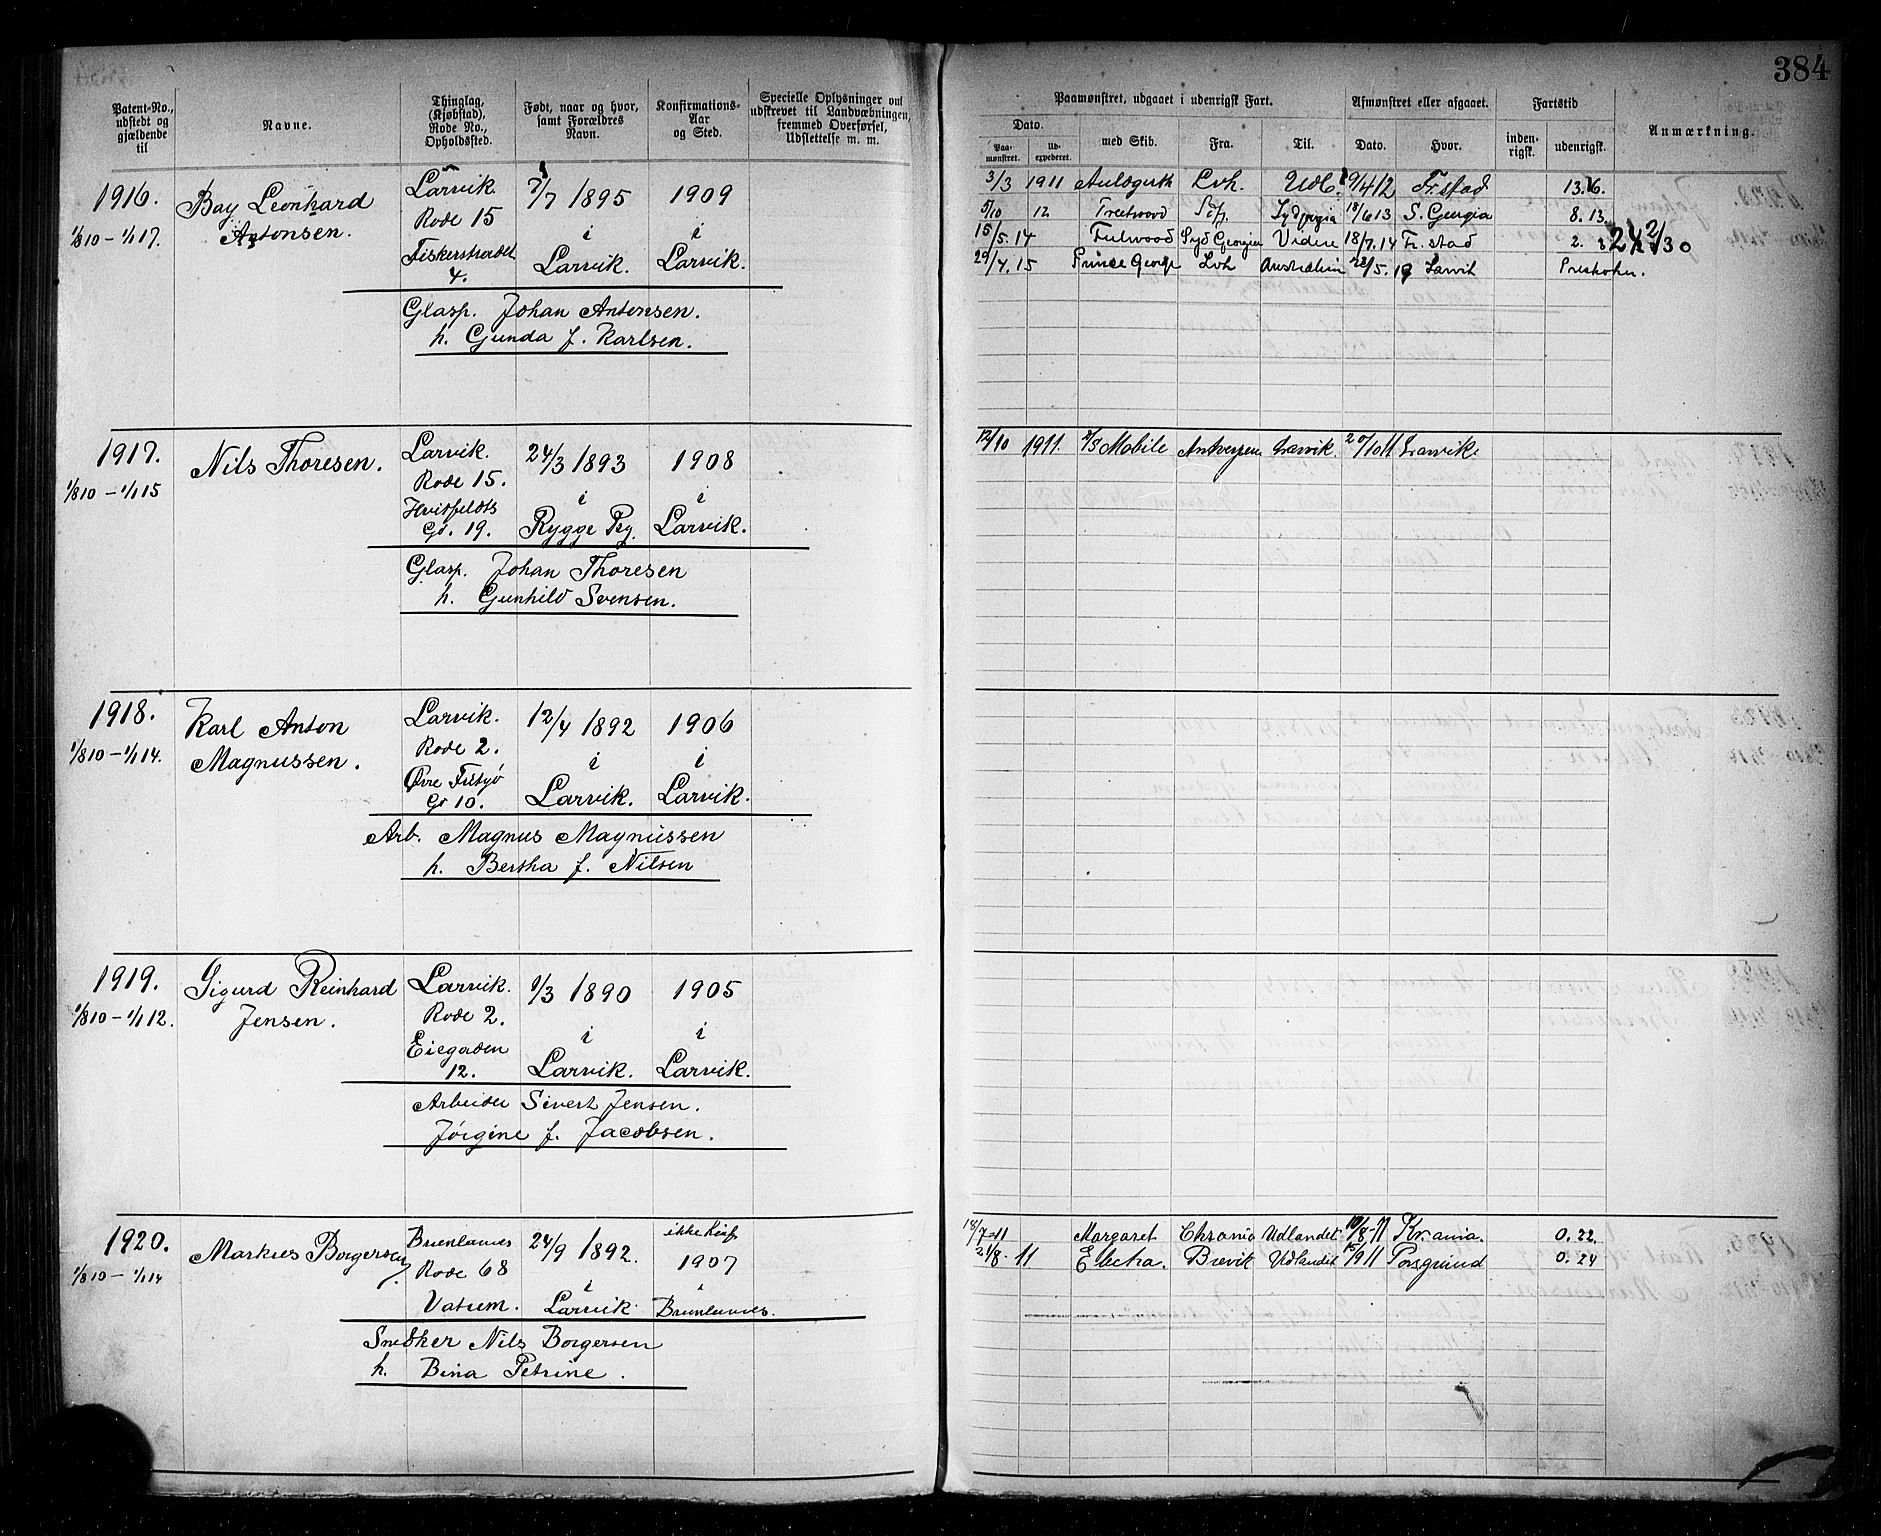 384
Patent-No., udstedt og gjældende til
Navne.
Thinglag, (Kjøbstad), Rode No., Opholdssted.
Født, naar og hvor, samt Forældres Navn.
Konfirmations-Aar og Sted.
Specielle Oplysninger om udskrevet til Landvæbningen, fremmed Overførsel, Udslettelse m. m.
Paamønstret, udgaaet i udenrigsk Fart.
Afmønstret eller afgaaet.
Fartstid
Anmærkning.
Dato.
Paa-mønstret.
Ud-expederet.
med Skib.
Fra.
Til.
Dato.
Hvor.
inden-rigsk.
udenrigsk.
1916.
1/8 10 – 1/1 17.
Bay Leonhard
Antonsen.
Larvik
Rode 15
4.
7/7 1895
i
Larvik.
1909
i
Larvik.
Glasp. Johan Antonsen.
h. Gunda f. Karlsen.
3/3 1911 Lvh. Udl. 9/4 12 Fr.stad 13.
5/10 12 18/6 13 S. Georgia 8. 13
15/5. 14 Fulwood Syd Georgien 18/7. 14 Fr. stad 2.
29/4. 15 Prince George Lvh Australien Larvik
1917.
1/8 10 – 1/1 15
Nils Thoresen.
Larvik.
Rode 15.
Hvidfeldts
Gd. 19.
24/3 1893
i
Rygge Pg.
1908
i
Larvik.
Glasp. Johan Thoresen
h. Gunhild Svensen.
12/10 1911. S/S Mobile Antwerpen Larvik 20/10 11 Larvik.
1918.
1/8 10 – 1/1 14.
Karl Anton
Magnussen.
Larvik.
Rode 2.
Øvre Fritzø
Gd 10.
12/4 1892
i
Larvik.
1906
i
Larvik.
Arb. Magnus Magnussen
h. Bertha f. Nilsen
1919.
1/8 10 – 1/1 12.
Sigurd Reinhard
Jensen.
Larvik.
Rode 2.
Eiegaden
12.
1/3 1890
i
Larvik.
1905
i
Larvik.
Arbeider Sivert Jensen.
Jørgine f. Jacobsen.
1920.
1/8 10 – 1/1 14
Markus Borgersen
Brunlanes
Rode 68
24/9 1892.
i
Larvik
ikke Konf
1907
i
Brunlanes.
Snedker Nils Borgersen
h. Bina Petrine.
18/7-11 Margaret Chrania Udlandet 10/8-11 Kr.ania. 0. 22.
21/8- 11 Electra. Brevik Udlandet 15/9 11 Porsgrund 0. 24